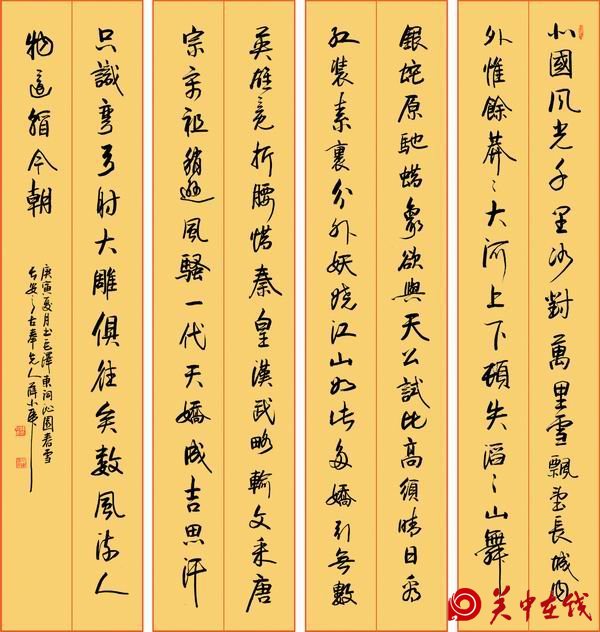 北國風光千里冰封萬里雪飄望長城内
外惟餘莽々大河上下頓失滔々山舞
銀蛇原馳蜡象欲與天公試比高須晴日看
紅装素裹分外妖嬈江山如此多嬌引無數
英雄竞折腰惜秦皇漢武略輸文采唐
宗宋祖稍遜風騷一代天嬌成吉思汗
只識彎弓射大雕俱往矣數風流人
物還看今朝
庚寅夏月書毛澤東詞沁園春雪
長安之古奉先人薛小
关中在线